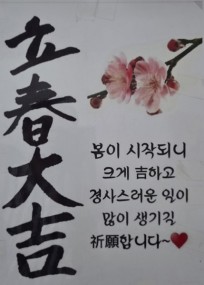 立春大吉
봄이 시작되니
크게 吉하고
경사스러운 일이
많이 생기길
祈願합니다~❤